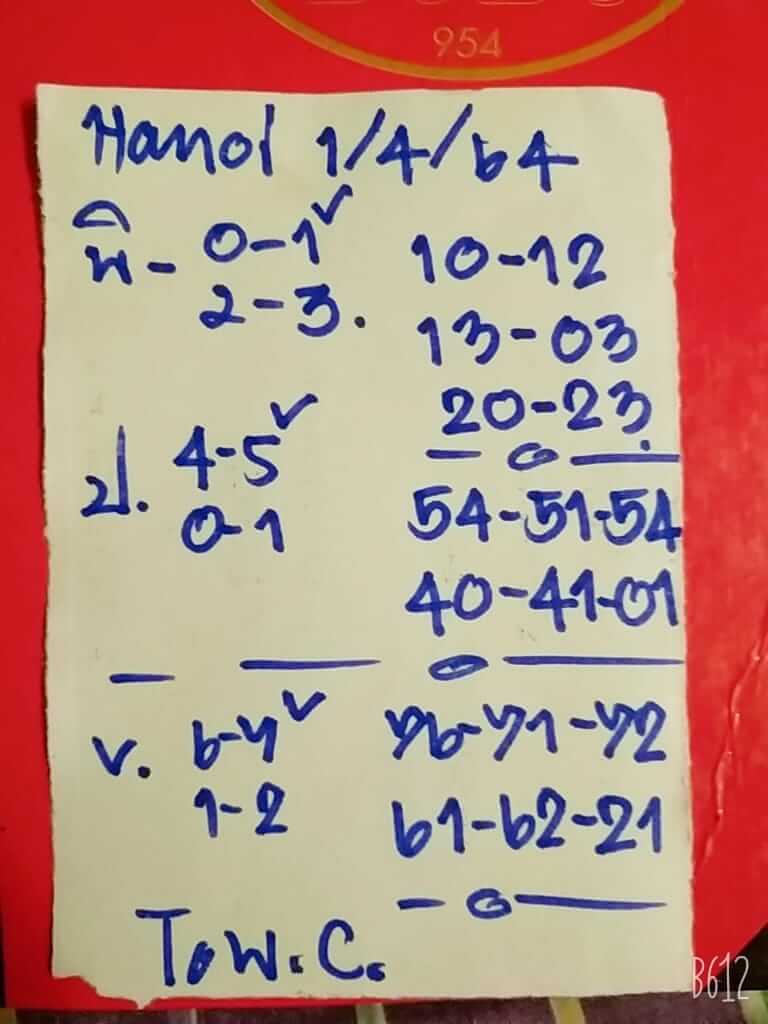 954
Hanoi 1/4/64
พิ - 0-1✓ 10-12
2-3. 13-03
20-23
ป. 4-5✓ 54-51-54
0-1 40-41-01
v. 6-7✓ 76-71-72
1-2 61-62-21
To W.C.
B612